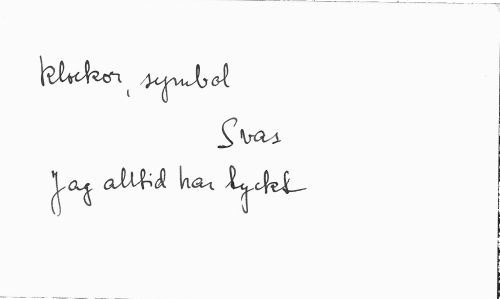 klockor, symbol
Svas
Jag alltid har tyckt